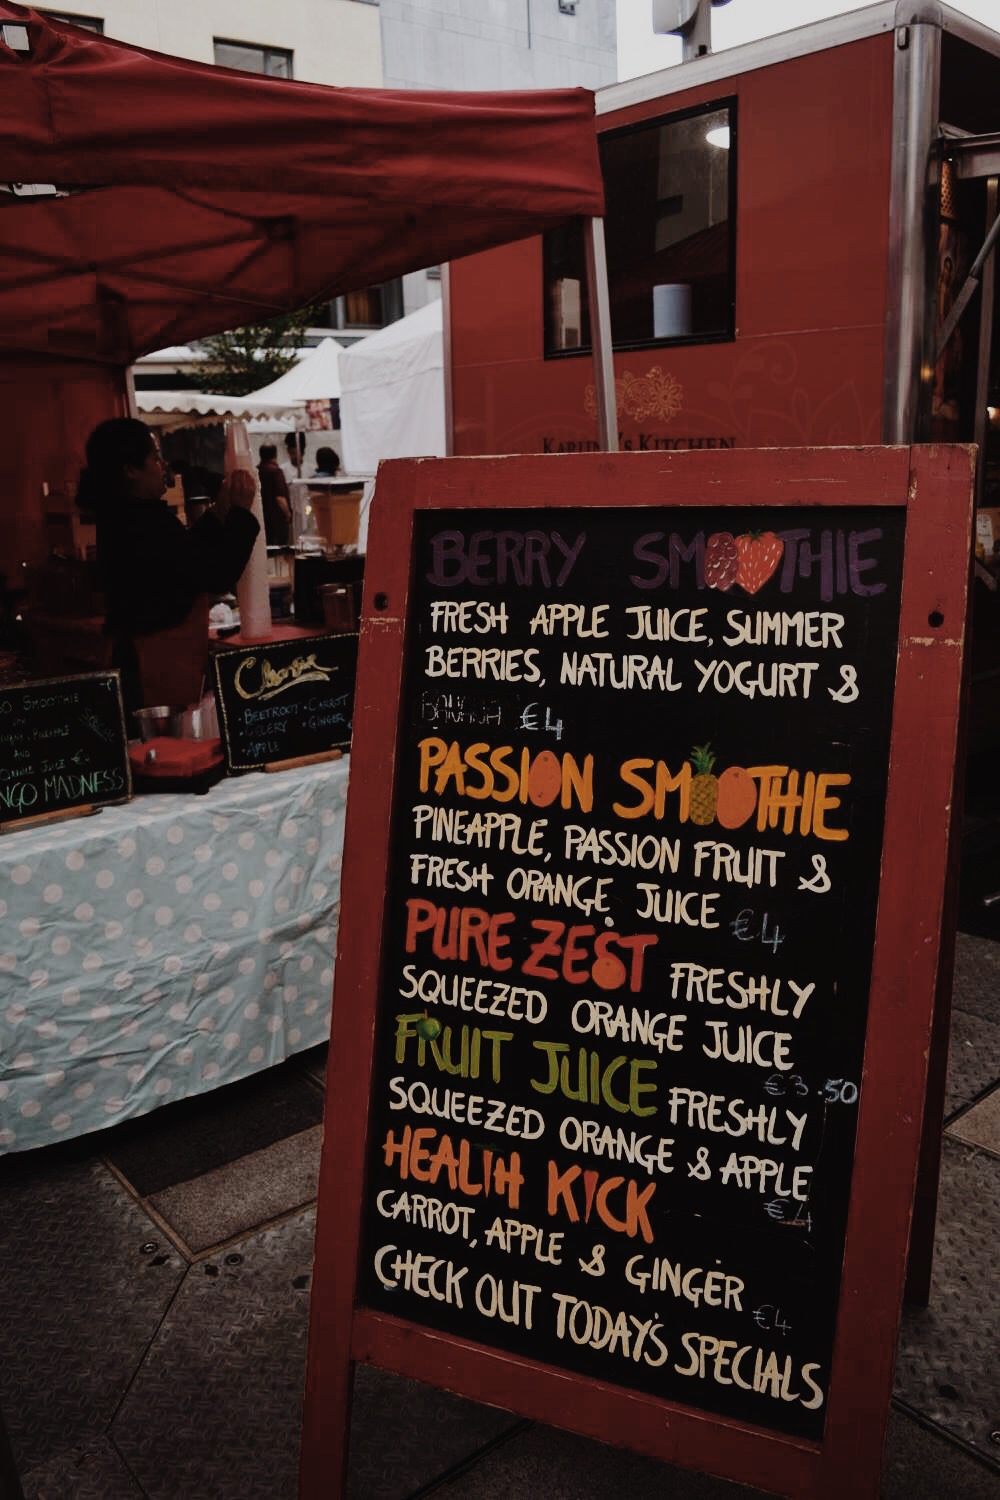 KITCHEN
BERRY SMOOTHIE
FRESH APPLE JUICE, SUMMER
BERRIES, NATURAL YOGURT &
BANANA €4
PASSION SMOOTHIE
PINEAPPLE, PASSION FRUIT &
FRESH ORANGE JUICE €4
PURE ZEST FRESHLY
SQUEEZED ORANGE JUICE
€3.50
FRUIT JUICE FRESHLY
SQUEEZED ORANGE & APPLE
€4
HEALTH KICK
CARROT, APPLE & GINGER
€4
CHECK OUT TODAY'S SPECIALS
• BEETROOT • CARROT
• CELERY • GINGER
• APPLE
SMOOTHIE
AND
JUICE
MADNESS